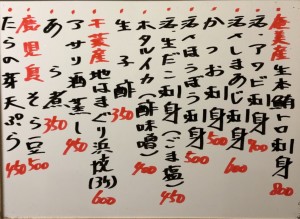 奄美産 生本鮪トロ刺身 800
活・アワビ刺身 900
活〆しまあじ刺身 600
かつお刺身 500
活〆ほうぼう刺身 500
活・生だこ刺身(ごま塩) 450
ホタルイカ(酢味噌) 400
生子酢 350
千葉産 地はまぐり浜焼(3ヶ) 600
アサリ酒蒸し 450
あら煮 350
鹿児島 そら豆 500
たらの芽天ぷら 450